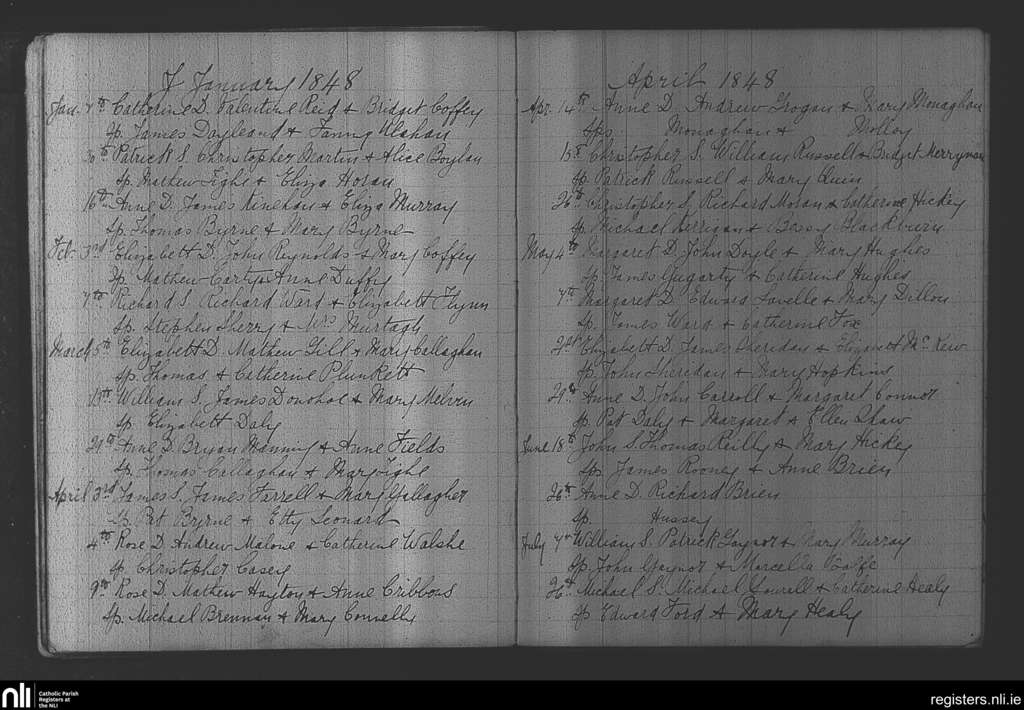 January 1848
Jan. 7th Catherine D. Valentine Reid & Bridget Coffey
Sp. James Doyle and & Fanny
30th Patrick S. Christopher Martin & Alice Boylan
Sp. Mathew Tighe & Eliza Horan
16th Anne D. James Kinehan & Eliza Murray
Sp. Thomas Byrne & Mary Byrne
Feb. 3rd Elizabett D. John Reynolds & Mary Coffey
Sp. Mathew Anne Duffy
7th Richard S. Richard Ward & Elizabett Flynn
Sp. Stephen Sherry & Mrs Murtagh
March 5th Elizabett D. Mathew Gill & Mary Callaghan
Sp. Thomas & Catherine Plunkett
13th William S. James Donohoe & Mary Melvin
Sp. Elizabett Daly
Anne D. Bryan Manning & Anne Fields
Sp. Thomas Callaghan & Mary
April 3rd James S. James Farrell & Mary Gallagher
Sp. Pat Byrne & Etty Leonard
4th Rose D. Andrew Malone & Catherine Walshe
Sp. Christopher Casey
9th Rose D. Mathew Hayton & Anne Cribbons
Sp. Michael Brennan & Mary Connelly
April 1848
Apr. 14th Anne D. Andrew Grogan & Mary Monaghan
Sps. Monaghan & Molloy
15th Christopher S. William Russell & Bridget Merryman
Sp. Patrick Russell & Mary Quin
26th Christopher S. Richard Moran & Catherine Hickey
Sp. Michael Kerrigan & Bessy Blackburn
May 4th Margaret D. John Doyle & Mary Hughes
Sp. James Gugarty & Catherine Hughes
7th Margaret D. Edward Lavelle & Mary Dillon
Sp. James Ward & Catherine Fox
21st Elizabett D. James Sheridan & Elizabett McKew
Sp. John Sheridan & Mary Hopkins
Anne D. John Carroll & Margaret Connor
Sp. Pat Daly & Margaret & Ellen Shaw
June 18th John S. Thomas Reilly & Mary Hickey
Sp. James Rooney & Anne Brien
26th Anne D. Richard Brien
Sp. Hussey
July 7th William S. Patrick Gaynor & Mary Murray
Sp. John Gaynor & Marcella
26th Michael S. Michael & Catherine Healy
Sp. Edward Ford & Mary Healy
nli
Catholic Parish
Registers at
the NLI
registers.nli.ie